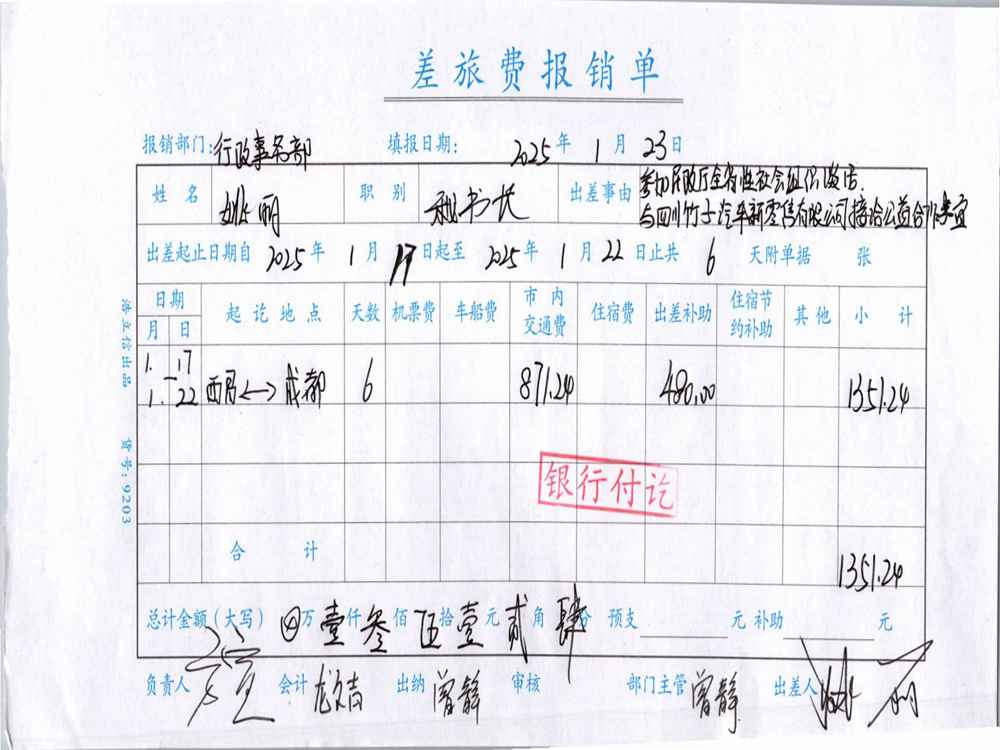 差旅费报销单
报销部门：行政事务部 填报日期： 2025年 1月 23日
姓名 姚丽 职别 秘书长 出差事由 参加民政厅全省性社会组织
与四川竹子汽车新零售有限公司接洽公益合作事宜
出差起止日期自 2025年 1月 17日起至 2025年 1月 22日止共 6 天附单据 张
日期 起讫地点 天数 机票费 车船费 市内交通费 住宿费 出差补助 住宿节约补助 其他 小计
月 日
1. 17 — 1. 22 西昌<->成都 6 871.24 480.00 1351.24
银行付讫
合计 1351.24
总计金额（大写） ⊕万壹仟叁佰伍拾壹元贰角肆分 预支 元 补助 元
负责人 会计 出纳 曾静 审核 部门主管 曾静 出差人 姚丽
浩立信出品 货号：9203